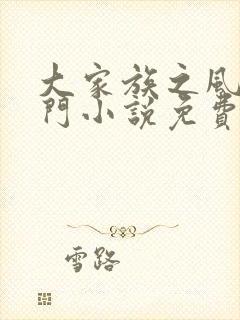 大家族之風
門小說免費
雪路